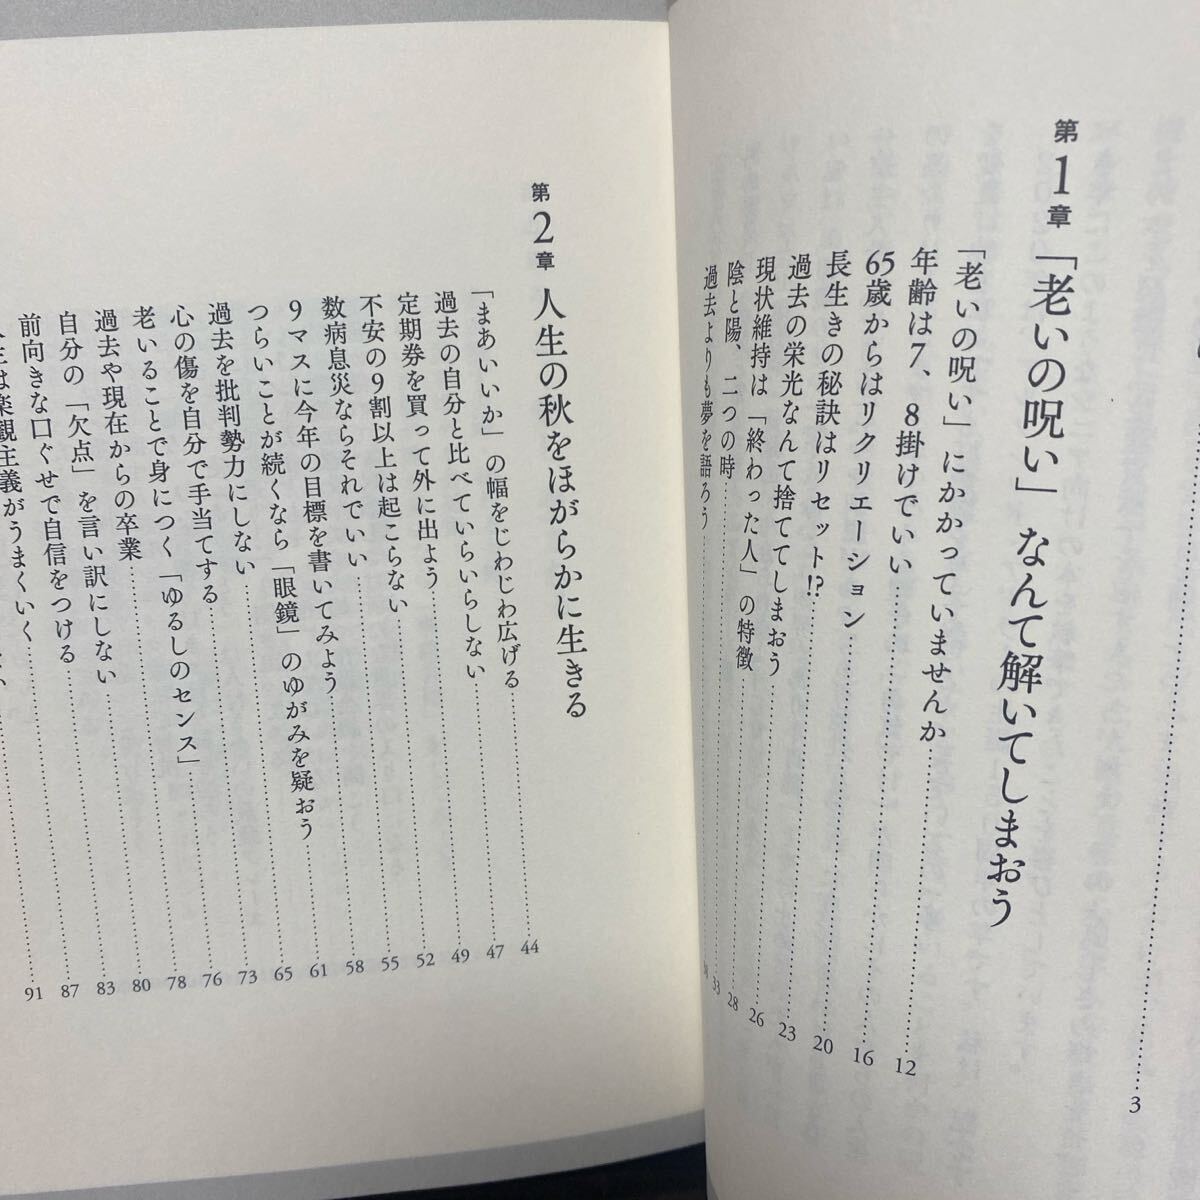 第1章 「老いの呪い」なんて解いてしまおう
「老いの呪い」にかかっていませんか 12
年齢は7、8掛けでいい 16
65歳からはリクリエーション 20
長生きの秘訣はリセット!? 23
過去の栄光なんて捨ててしまおう 26
現状維持は「終わった人」の特徴 28
陰と陽、二つの時 33
過去よりも夢を語ろう
3
第2章 人生の秋をほがらかに生きる
「まあいいか」の幅をじわじわ広げる 44
過去の自分と比べていらいらしない 47
定期券を買って外に出よう 49
不安の9割以上は起こらない 52
数病息災ならそれでいい 55
9マスに今年の目標を書いてみよう 58
つらいことが続くなら「眼鏡」のゆがみを疑おう 61
過去を批判勢力にしない 65
心の傷を自分で手当てする 73
老いることで身につく「ゆるしのセンス」 76
過去や現在からの卒業 78
自分の「欠点」を言い訳にしない 80
前向きな口ぐせで自信をつける 83
は楽観主義がうまくいく 87
91